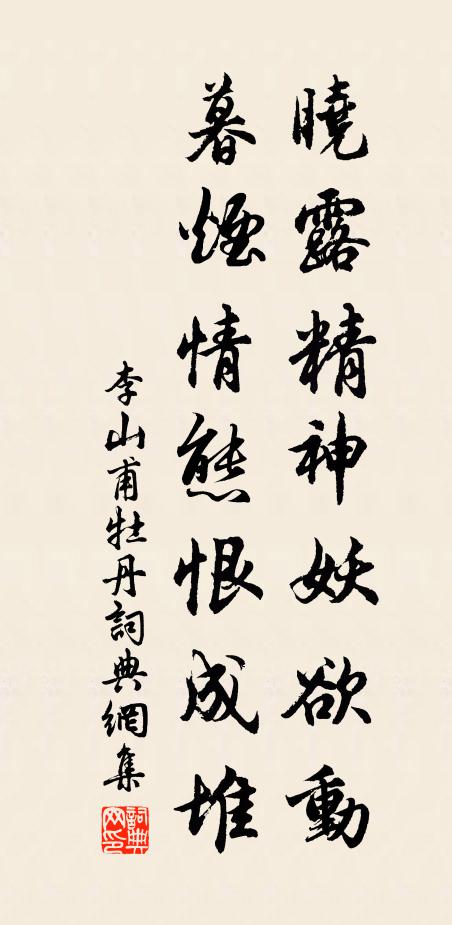 曉露精神妖欲動
暮煙情態恨成堆
李山甫牡丹詞典網集
詞典网印